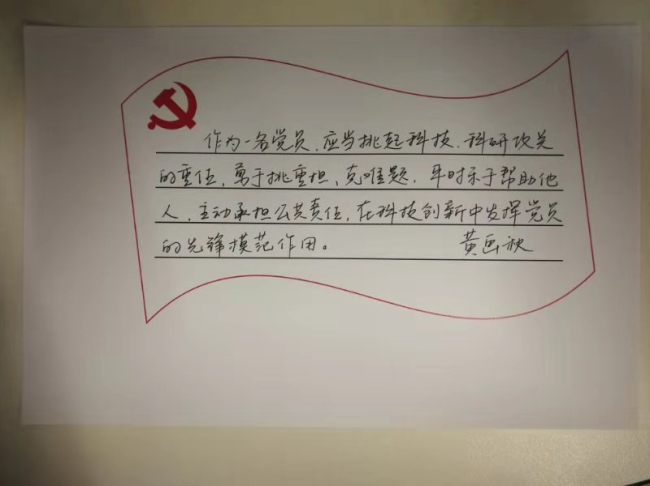 作为一名党员，应当挑起科技、科研攻关
的重任，勇于挑重担、克难题。平时乐于帮助他
人，主动承担公共责任，在科技创新中发挥党员
的先锋模范作用。 黄